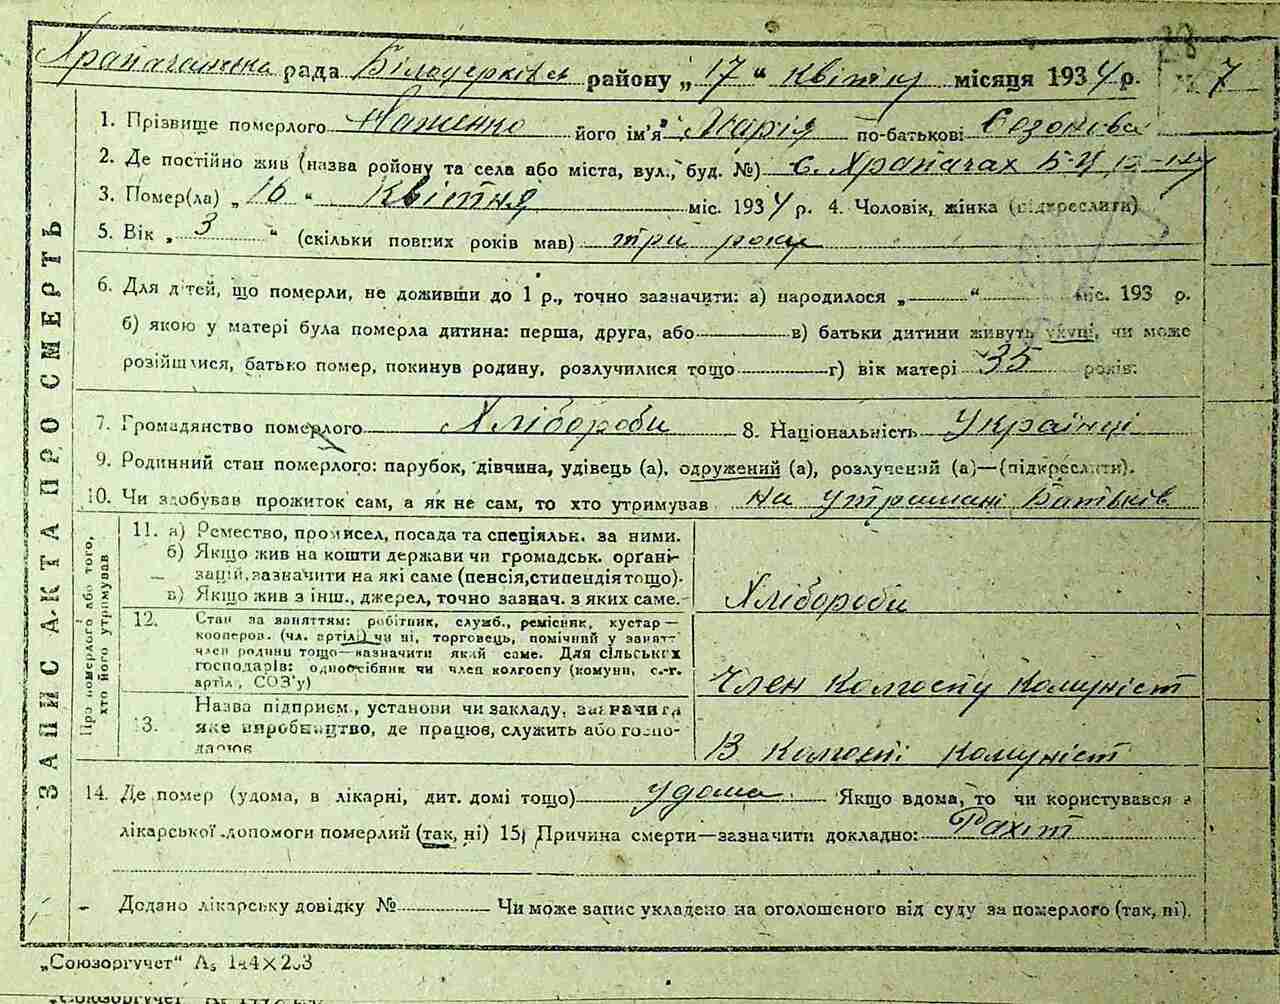 Храпачанська рада Білоцерківськ району „17“ квітня місяця 1934 р. № 7
1. Прізвище померлого його ім'я Марія по-батькові Созонова
2. Де постійно жив (назва ройону та села або міста, вул., буд. №) с. Храпачах Б-Ц
3. Помер(ла) „16“ Квітня міс. 1934 р. 4. Чоловік, жінка (підкреслити)
5. Вік „3“ (скільки повних років мав) три роки
6. Для дітей, що померли, не доживши до 1 р., точно зазначити: а) народилося „ “ міс. 193 р.
б) якою у матері була померла дитина: перша, друга, або в) батьки дитини живуть укупі, чи може
розійшлися, батько помер, покинув родину, розлучилися тощо г) вік матері 35 років.
7. Громадянство померлого Хлібороби 8. Національність Українці
9. Родинний стан померлого: парубок, дівчина, удівець (а), одружений (а), розлучений (а)—(підкреслити).
10. Чи здобував прожиток сам, а як не сам, то хто утримував на утримані Батьків
ЗАПИС АКТА ПРО СМЕРТЬ
Про померлого або того, хто його утримував
11. а) Ремество, промисел, посада та спеціяльн. за ними.
б) Якщо жив на кошти держави чи громадськ. органі-
зацій, зазначити на які саме (пенсія, стипендія тощо).
в) Якщо жив з інш., джерел, точно зазнач. з яких саме.
Хлібороби
12. Стан за заняттям: робітник, служб., ремісник, кустар—
кооперов. (чл. артілі) чи ні, торговець, помічний у занятт
член родини тощо—зазначити який саме. Для сільських
господарів: одноосібник чи член колгоспу (комуни, с.-г.
артіл, СОЗ'у)
Член колгоспу Комуніст
13. Назва підприєм., установи чи закладу, зазначити
яке виробництво, де працює, служить або госпо-
дарює
В колгоспі комуніст
14. Де помер (удома, в лікарні, дит. домі тощо) удома Якщо вдома, то чи користувався з
лікарської допомоги померлий (так, ні) 15) Причина смерти—зазначити докладно: Рахіт
Додано лікарську довідку № Чи може запис укладено на оголошеного від суду за померлого (так, ні).
„Союзоргучет“ А₅ 144×203